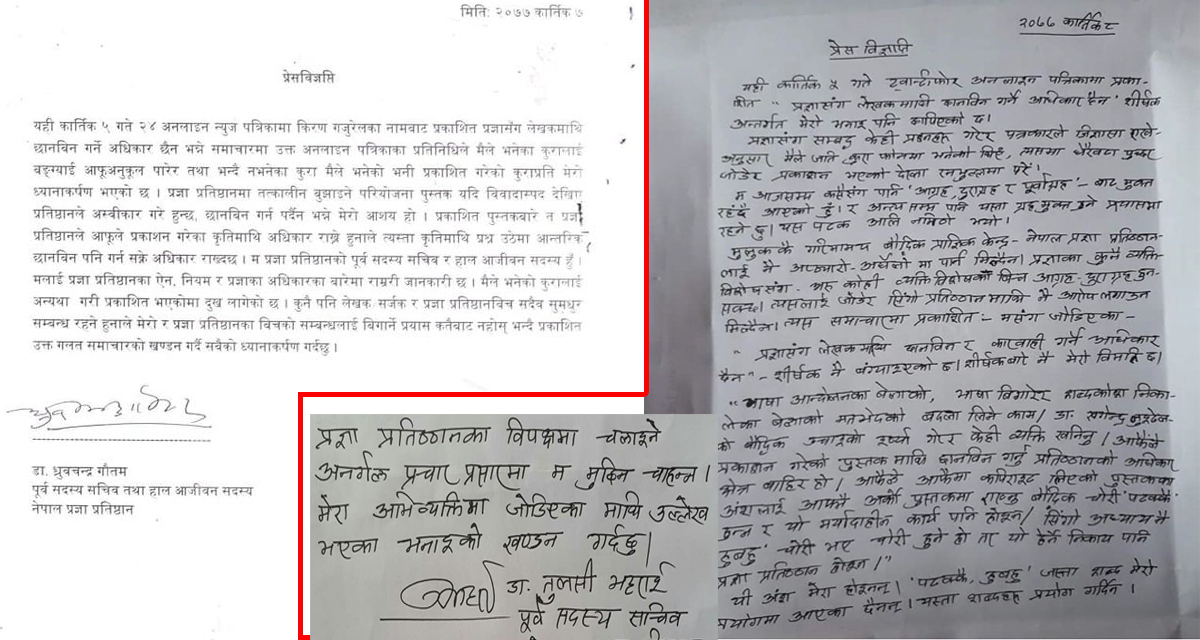 मिति: २०७७ कार्तिक ७
प्रेसविज्ञप्ति
यही कार्तिक ५ गते २४ अनलाइन न्युज पत्रिकामा किरण गजुरेलका नामबाट प्रकाशित प्रज्ञासँग लेखकमाथि
छानविन गर्ने अधिकार छैन भन्ने समाचारमा उक्त अनलाइन पत्रिकाका प्रतिनिधिले मैले भनेका कुरालाई
बङ्ग्याई आफूअनुकूल पारेर तथा भन्दै नभनेका कुरा मैले भनेको भनी प्रकाशित गरेको कुराप्रति मेरो
ध्यानाकर्षण भएको छ । प्रज्ञा प्रतिष्ठानमा तत्कालीन बुझाइने परियोजना पुस्तक यदि विवादास्पद देखिए
प्रतिष्ठानले अस्वीकार गरे हुन्छ, छानविन गर्न पर्दैन भन्ने मेरो आशय हो । प्रकाशित पुस्तकबारे त प्रज्ञा
प्रतिष्ठानले आफूले प्रकाशन गरेका कृतिमाथि अधिकार राख्ने हुनाले त्यस्ता कृतिमाथि प्रश्न उठेमा आन्तरिक
छानविन पनि गर्न सक्ने अधिकार राख्दछ । म प्रज्ञा प्रतिष्ठानको पूर्व सदस्य सचिव र हाल आजीवन सदस्य हुँ ।
मलाई प्रज्ञा प्रतिष्ठानका ऐन, नियम र प्रज्ञाका अधिकारका बारेमा राम्ररी जानकारी छ । मैले भनेको कुरालाई
अन्यथा गरी प्रकाशित भएकोमा दुख लागेको छ । कुनै पनि लेखक सर्जक र प्रज्ञा प्रतिष्ठानबिच सदैव सुमधुर
सम्बन्ध रहने हुनाले मेरो र प्रज्ञा प्रतिष्ठानका बिचको सम्बन्धलाई बिगार्ने प्रयास कतैबाट नहोस् भन्दै प्रकाशित
उक्त गलत समाचारको खण्डन गर्दै सबैको ध्यानाकर्षण गर्दछु ।
डा. ध्रुवचन्द्र गौतम
पूर्व सदस्य सचिव तथा हाल आजीवन सदस्य
नेपाल प्रज्ञा प्रतिष्ठान
२०७७ कार्तिक ८
प्रेस विज्ञप्ति
यही कार्तिक ५ गते ट्वान्टीफोर अनलाइन पत्रिकामा प्रका-
शित "प्रज्ञासंग लेखकमाथि छानविन गर्ने अधिकार छैन" शीर्षक
अन्तर्गत मेरो भनाइ पनि छापिएको छ।
प्रज्ञासंग सम्बद्ध केही प्रश्नहरू गरेर पत्रकारले जिज्ञासा राखे-
अनुसार मैले जति कुरा फोनमा भनेको थिएँ, त्यसमा थैरैवटा पुच्छर
जोडेर प्रकाशन भएको देख्दा रनभुल्लमा परें।
म आजसम्म कसैसंग पनि 'आग्रह, दुराग्रह र पूर्वाग्रह'- बाट मुक्त
रहँदै आएको हुँ। र अन्त्यसम्म पनि यस्ता ग्रहमुक्त हुने प्रयासमा
रहने छु। यस पटक अलि नमिठो भयो।
मुलुककै गरिमामय बौद्धिक प्राज्ञिक केन्द्र - नेपाल प्रज्ञा प्रतिष्ठान-
लाई नै अप्ठ्यारो-अर्घेलोमा पार्न मिल्दैन। प्रज्ञाका कुनै व्यक्ति-
विशेषसंग- अरू कोही व्यक्तिविशेषको भिन्न आग्रह-दुराग्रह हुन-
सक्छ। त्यसलाई जोडेर सिंगो प्रतिष्ठानमाथि नै आरोप लगाउन
मिल्दैन। त्यस समाचारमा प्रकाशित - मसंग जोडिएका -
"प्रज्ञासंग लेखकमाथि छानविन र कारवाही गर्ने अधिकार
छैन" - शीर्षक नै बंग्याइएको छ। शीर्षकबारे नै मेरो विमति छ।
"भाषा आन्दोलनका बेलाको, भाषा बिगारेर शब्दकोश निका-
लेका बेलाको मतभेदको बदला लिने काम। डा. खगेन्द्र लुइटेल-
को बौद्धिक उचाइको इर्ष्या गरेर केही व्यक्ति खनिनु। आफैंले
प्रकाशन गरेको पुस्तक माथि छानविन गर्नु प्रतिष्ठानको अधिकार
क्षेत्र बाहिर हो। आफैंले आफैमा कपिराइट लिएको पुस्तकका
अंशलाई आफ्नै अर्को पुस्तकमा राख्नु बौद्धिक चोरी 'पटक्कै'
हुन्न र यो मर्यादाहीन कार्य पनि होइन। सिंगो अध्याय नै
'हुबहु' चोरी भए चोरी हुने हो तर यो हेर्ने निकाय पनि
प्रज्ञा प्रतिष्ठान होइन।"
यी अंश मेरा होइनन्। 'पटक्कै, हुबहु' जस्ता शब्द मेरो
प्रयोगमा आएका छैनन्। यस्ता शब्दहरू प्रयोग गर्दिन ।
प्रज्ञा प्रतिष्ठानका विपक्षमा चलाइने
अनर्गल प्रचार प्रसारमा म मुछिन चाहन्न ।
मेरा अभिव्यक्तिमा जोडिएका माथि उल्लेख
भएका भनाइको खण्डन गर्दछु।
डा. तुलसी भट्टराई
पूर्व सदस्य सचिव